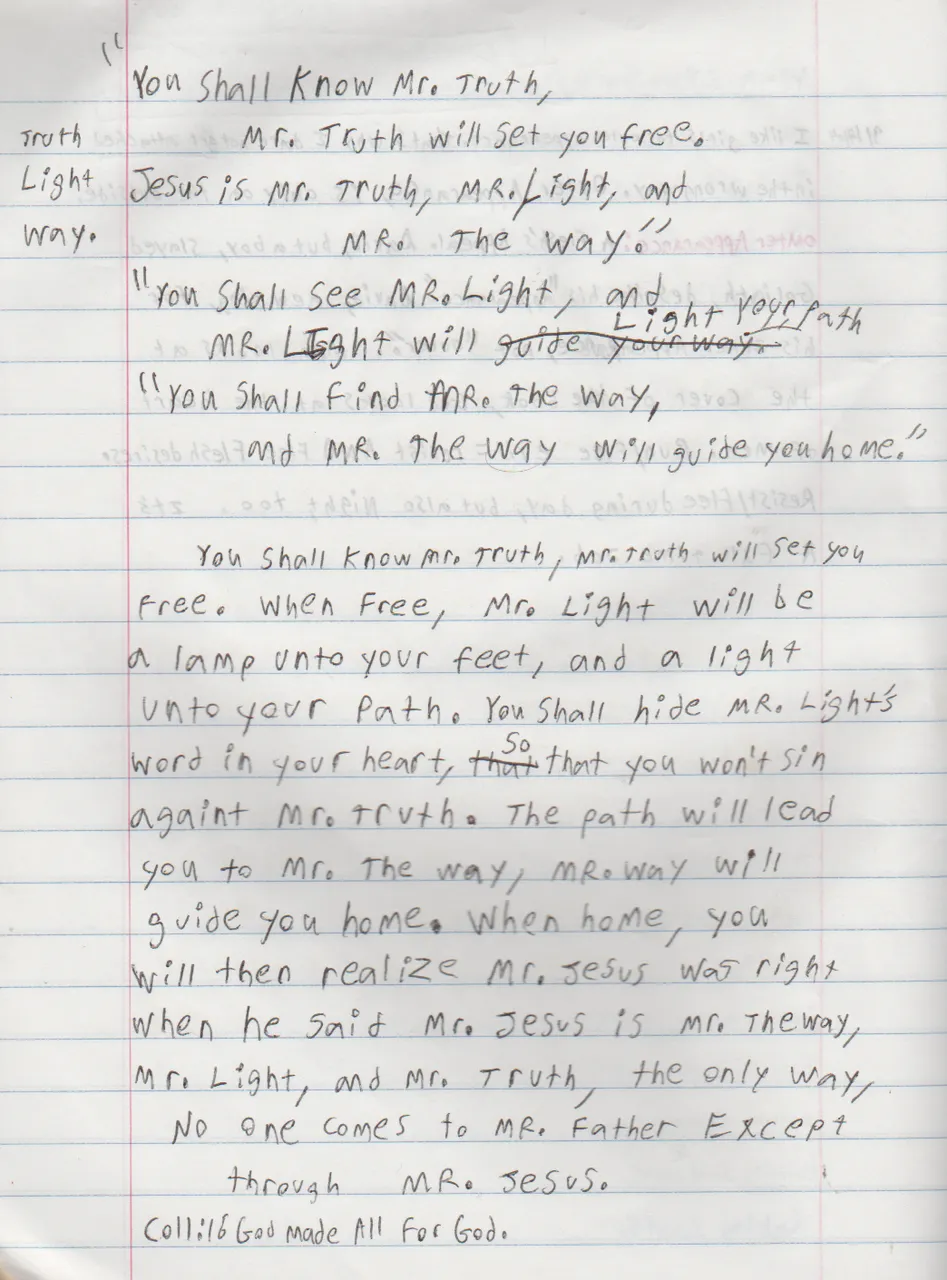 "
You Shall Know Mr. Truth,
Mr. Truth will set you free.
Truth
Light
way.
Jesus is Mr. Truth, MR. Light, and
MR. The way."
"You Shall see MR. Light, and
Light your path
MR. Light will guide your way.
"You Shall find MR. The way,
and MR. The way will guide you home."
You Shall Know Mr. Truth, Mr. Truth will set you
Free. When Free, Mr. Light will be
a lamp unto your feet, and a light
unto your Path. You Shall hide MR. Light's
So
word in your heart, that that you won't sin
againt Mr. Truth. The path will lead
you to Mr. The way, MR. way will
guide you home. When home, you
will then realize Mr. Jesus was right
when he Said Mr. Jesus is Mr. The way,
Mr. Light, and Mr. Truth, the only way,
No one comes to MR. Father Except
through MR. Jesus.
Coll:16 God made All For God.